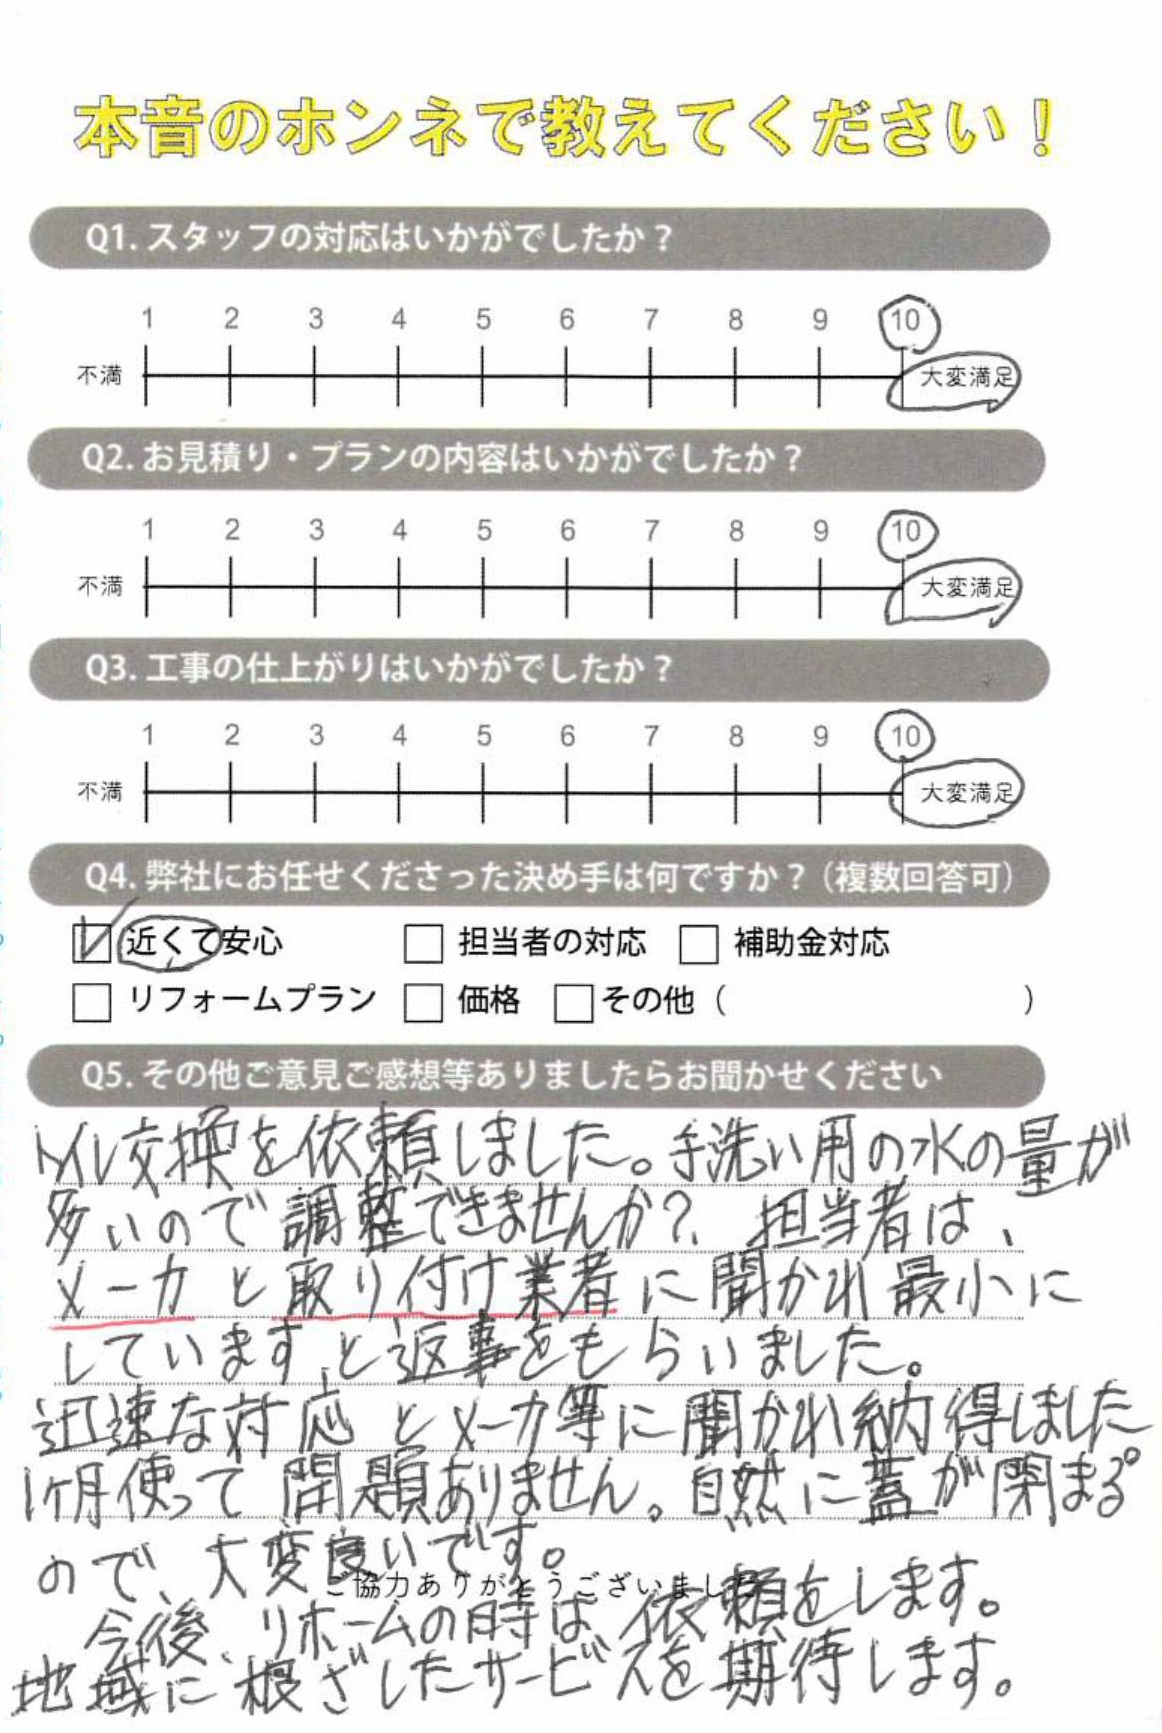 本音のホンネで教えてください！
Q1. スタッフの対応はいかがでしたか？
1 2 3 4 5 6 7 8 9 10
不満 大変満足
Q2. お見積り・プランの内容はいかがでしたか？
1 2 3 4 5 6 7 8 9 10
不満 大変満足
Q3. 工事の仕上がりはいかがでしたか？
1 2 3 4 5 6 7 8 9 10
不満 大変満足
Q4. 弊社にお任せくださった決め手は何ですか？（複数回答可）
近くて安心 担当者の対応 補助金対応
リフォームプラン 価格 その他（ ）
Q5. その他ご意見ご感想等ありましたらお聞かせください
トイレ交換を依頼しました。手洗い用の水の量が
多いので調整できませんか？ 担当者は、
メーカと取り付け業者に聞かれ最小に
しています、と返事をもらいました。
迅速な対応とメーカ等に聞かれ納得しました
1ヶ月使って問題ありません。自然に蓋が閉まる
ので、大変良いです。
ご協力ありがとうございました
今後、リホームの時は、依頼をします。
地域に根ざしたサービスを期待します。